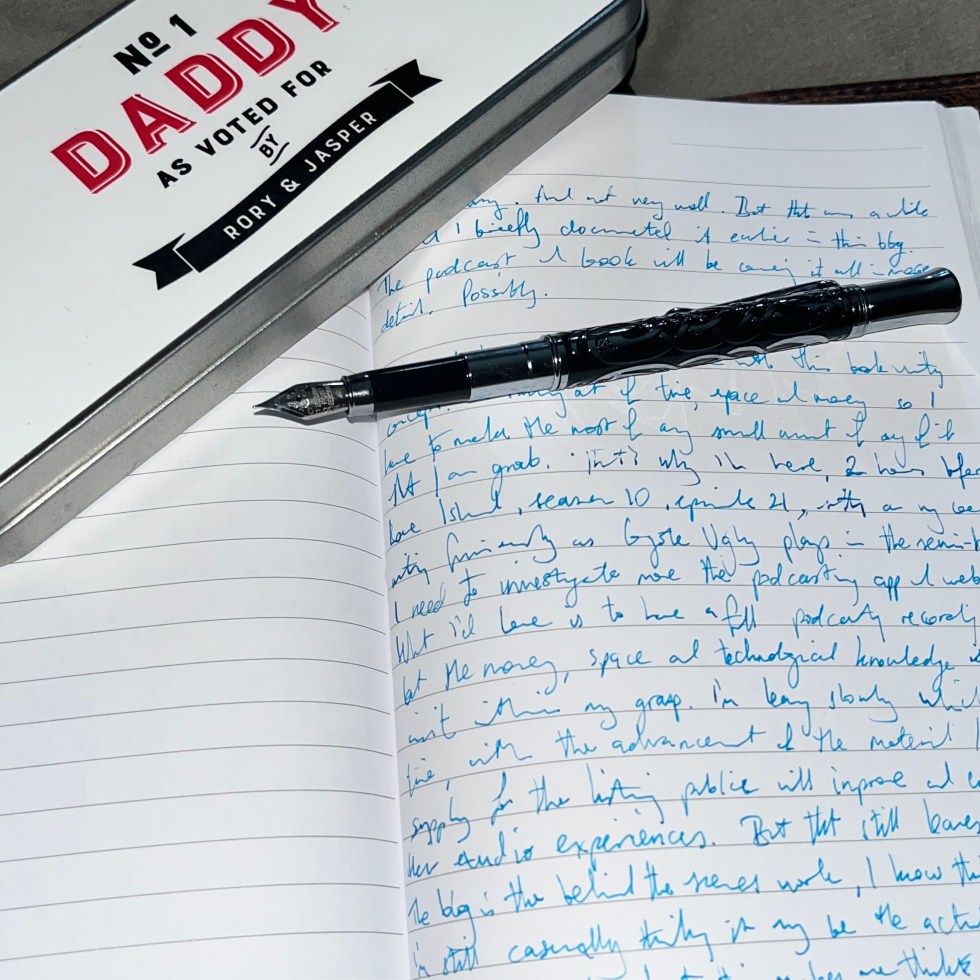 Nº 1
DADDY
AS VOTED FOR
BY
RORY & JASPER
And not very well. But that was a while
I briefly documented it earlier in this blog.
The podcast & book will be it all in more
detail. Possibly.
this book
at of time, space & money so I
have to make the most of any small amount of any of it
that I can grab. That's why I'm here, 2 hours before
Love Island, season 10, episode 21, on my
writing furiously as Coyote Ugly plays in the
I need to investigate more the podcasting app & web
What I'd love is to have a full podcasting
but the money, space and technological knowledge
isn't within my grasp. I'm slowly
time, with the advancement of the material I
supply for the public will improve and
audio experiences. But that still leaves
The blog is the behind the scenes work, I know
I'm still casually it may be the